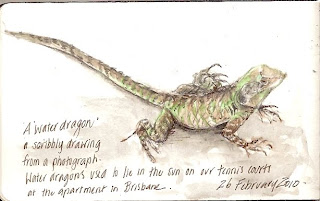 A 'water dragon'
a scribbly drawing
from a photograph.
Water dragons used to lie in the sun on our tennis courts
at the apartment in Brisbane.
26 February 2010.